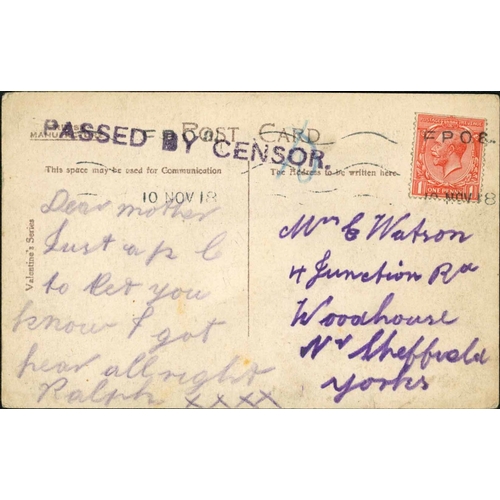 POST CARD
PASSED BY CENSOR.
F.P.O. 8.
This space may be used for Communication
The Address to be written here.
10 NOV 18
10 NOV 18
ONE PENNY
Valentine's Series
Dear mother
Just a p C
to let you
know I got
hear allright
Ralph xxxx
Mrs C Watson
4 Junction Rd
Woodhouse
Nr Sheffield
Yorks